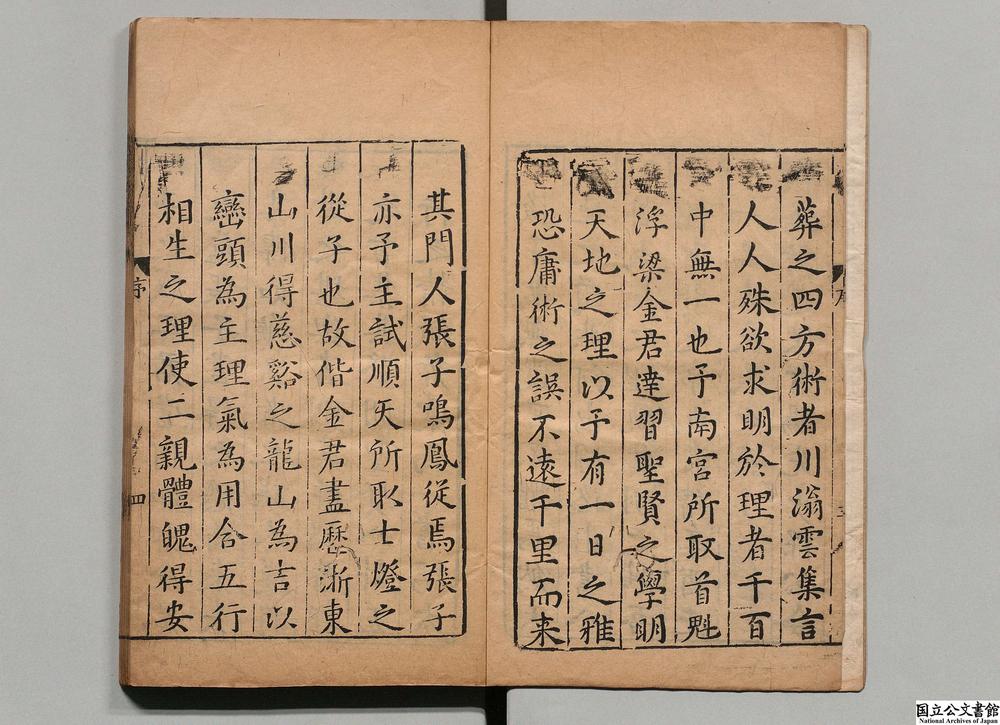 葬之四方術者川滃雲集言
人人殊欲求明於理者千百
中無一也予南宮所取首魁
浮梁金君達習聖賢之學明
天地之理以予有一日之雅
恐庸術之誤不遠千里而来
其門人張子鳴鳳從焉張子
亦予主試順天所取士燈之
從子也故偕金君盡歷浙東
山川得慈谿之龍山為言以
巒頭為主理氣為用合五行
相生之理使二親體魄得安
序
四
国立公文書館
National Archives of Japan